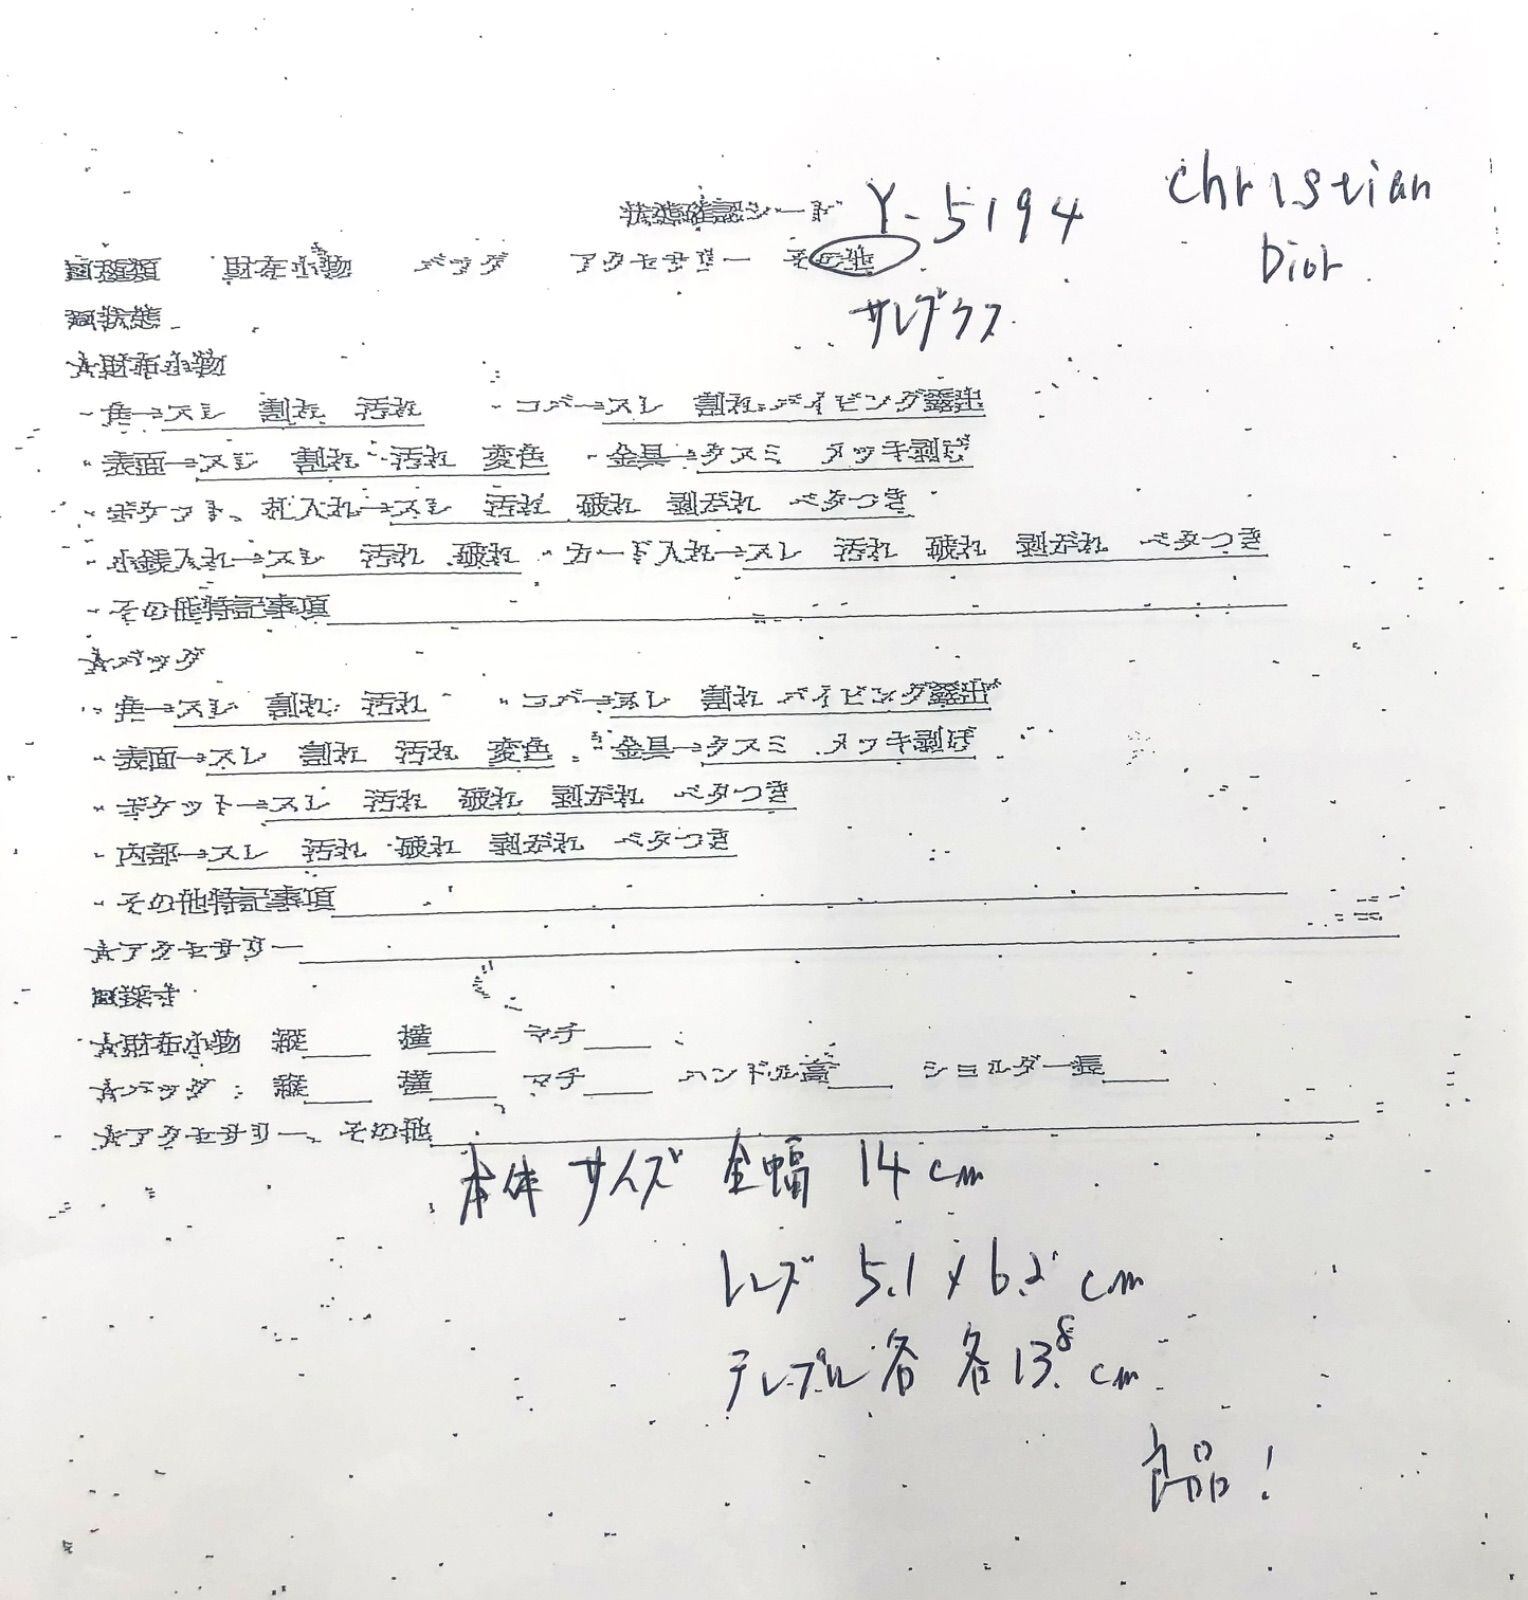 Christian
状態確認シート Y-5194
Dior
■種類 財布小物 バッグ アクセサリー その他
サングラス
■状態
★財布小物
・角→スレ 割れ 汚れ ・コバ→スレ 割れ パイピング露出
・表面→スレ 割れ 汚れ 変色 ・金具→クスミ メッキ剥げ
・ポケット、札入れ→スレ 汚れ 破れ 剥がれ ベタつき
・小銭入れ→スレ 汚れ 破れ ・カード入れ→スレ 汚れ 破れ 剥がれ ベタつき
・その他特記事項
★バッグ
・角→スレ 割れ 汚れ ・コバ→スレ 割れ パイピング露出
・表面→スレ 割れ 汚れ 変色 ・金具→クスミ メッキ剥げ
・ポケット→スレ 汚れ 破れ 剥がれ ベタつき
・内部→スレ 汚れ 破れ 剥がれ ベタつき
・その他特記事項
★アクセサリー
■採寸
★財布小物 縦 横 マチ
★バッグ 縦 横 マチ ハンドル高 ショルダー長
★アクセサリー、その他
本体サイズ 全幅 14cm
レンズ 5.1×6.2cm
テンプル各 各13.8cm
良品！